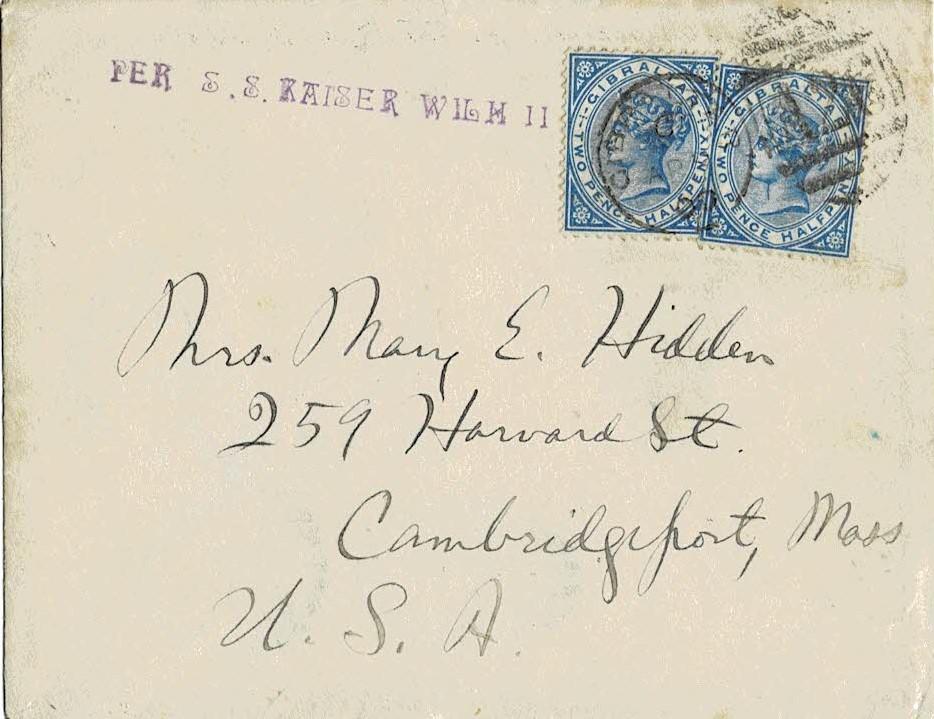 PER S.S. KAISER WILH II
GIBRALTAR
TWO PENCE HALFPENNY
GIBRALTAR
TWO PENCE HALFPENNY
Mrs. Mary E. Hidden
259 Harvard St.
Cambridgeport, Mass
U. S. A.